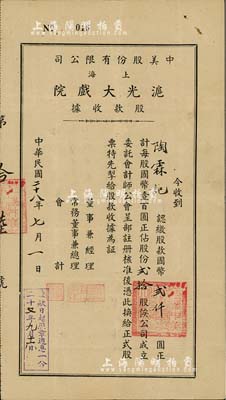 No 046
中美股份有限公司
上海
滬光大戲院
股款收據
今收到
陶霖記 認繳股款國幣貳仟圓正
計每股國幣壹百圓正佔股份貳拾股俟公司成立
委託會計師公會呈部註册核准後憑此換給正式股
票特先掣給股款收據為証
董事兼經理
常務董事兼總理
會計
中華民國二十八年七月一日
第拾陸號